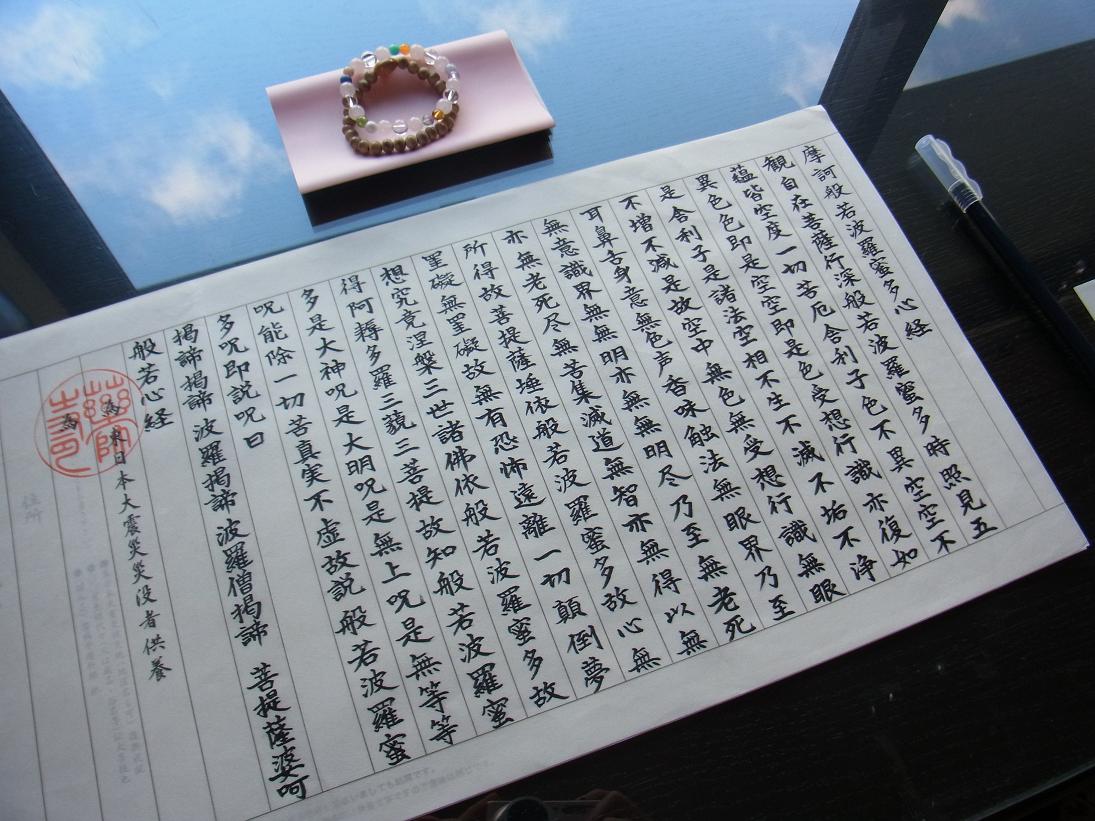 摩訶般若波羅蜜多心経
観自在菩薩行深般若波羅蜜多時照見五
蘊皆空度一切苦厄舎利子色不異空空不
異色色即是空空即是色受想行識亦復如
是舎利子是諸法空相不生不滅不垢不浄
不増不減是故空中無色無受想行識無眼
耳鼻舌身意無色声香味触法無眼界乃至
無意識界無無明亦無無明尽乃至無老死
亦無老死尽無苦集滅道無智亦無得以無
所得故菩提薩埵依般若波羅蜜多故心無
罣礙無罣礙故無有恐怖遠離一切顛倒夢
想究竟涅槃三世諸佛依般若波羅蜜多故
得阿耨多羅三藐三菩提故知般若波羅蜜
多是大神呪是大明呪是無上呪是無等等
呪能除一切苦真実不虚故説般若波羅蜜
多呪即説呪曰
掲諦掲諦 波羅掲諦 波羅僧掲諦 菩提薩婆呵
般若心経
為 東日本大震災災没者供養
為
住所